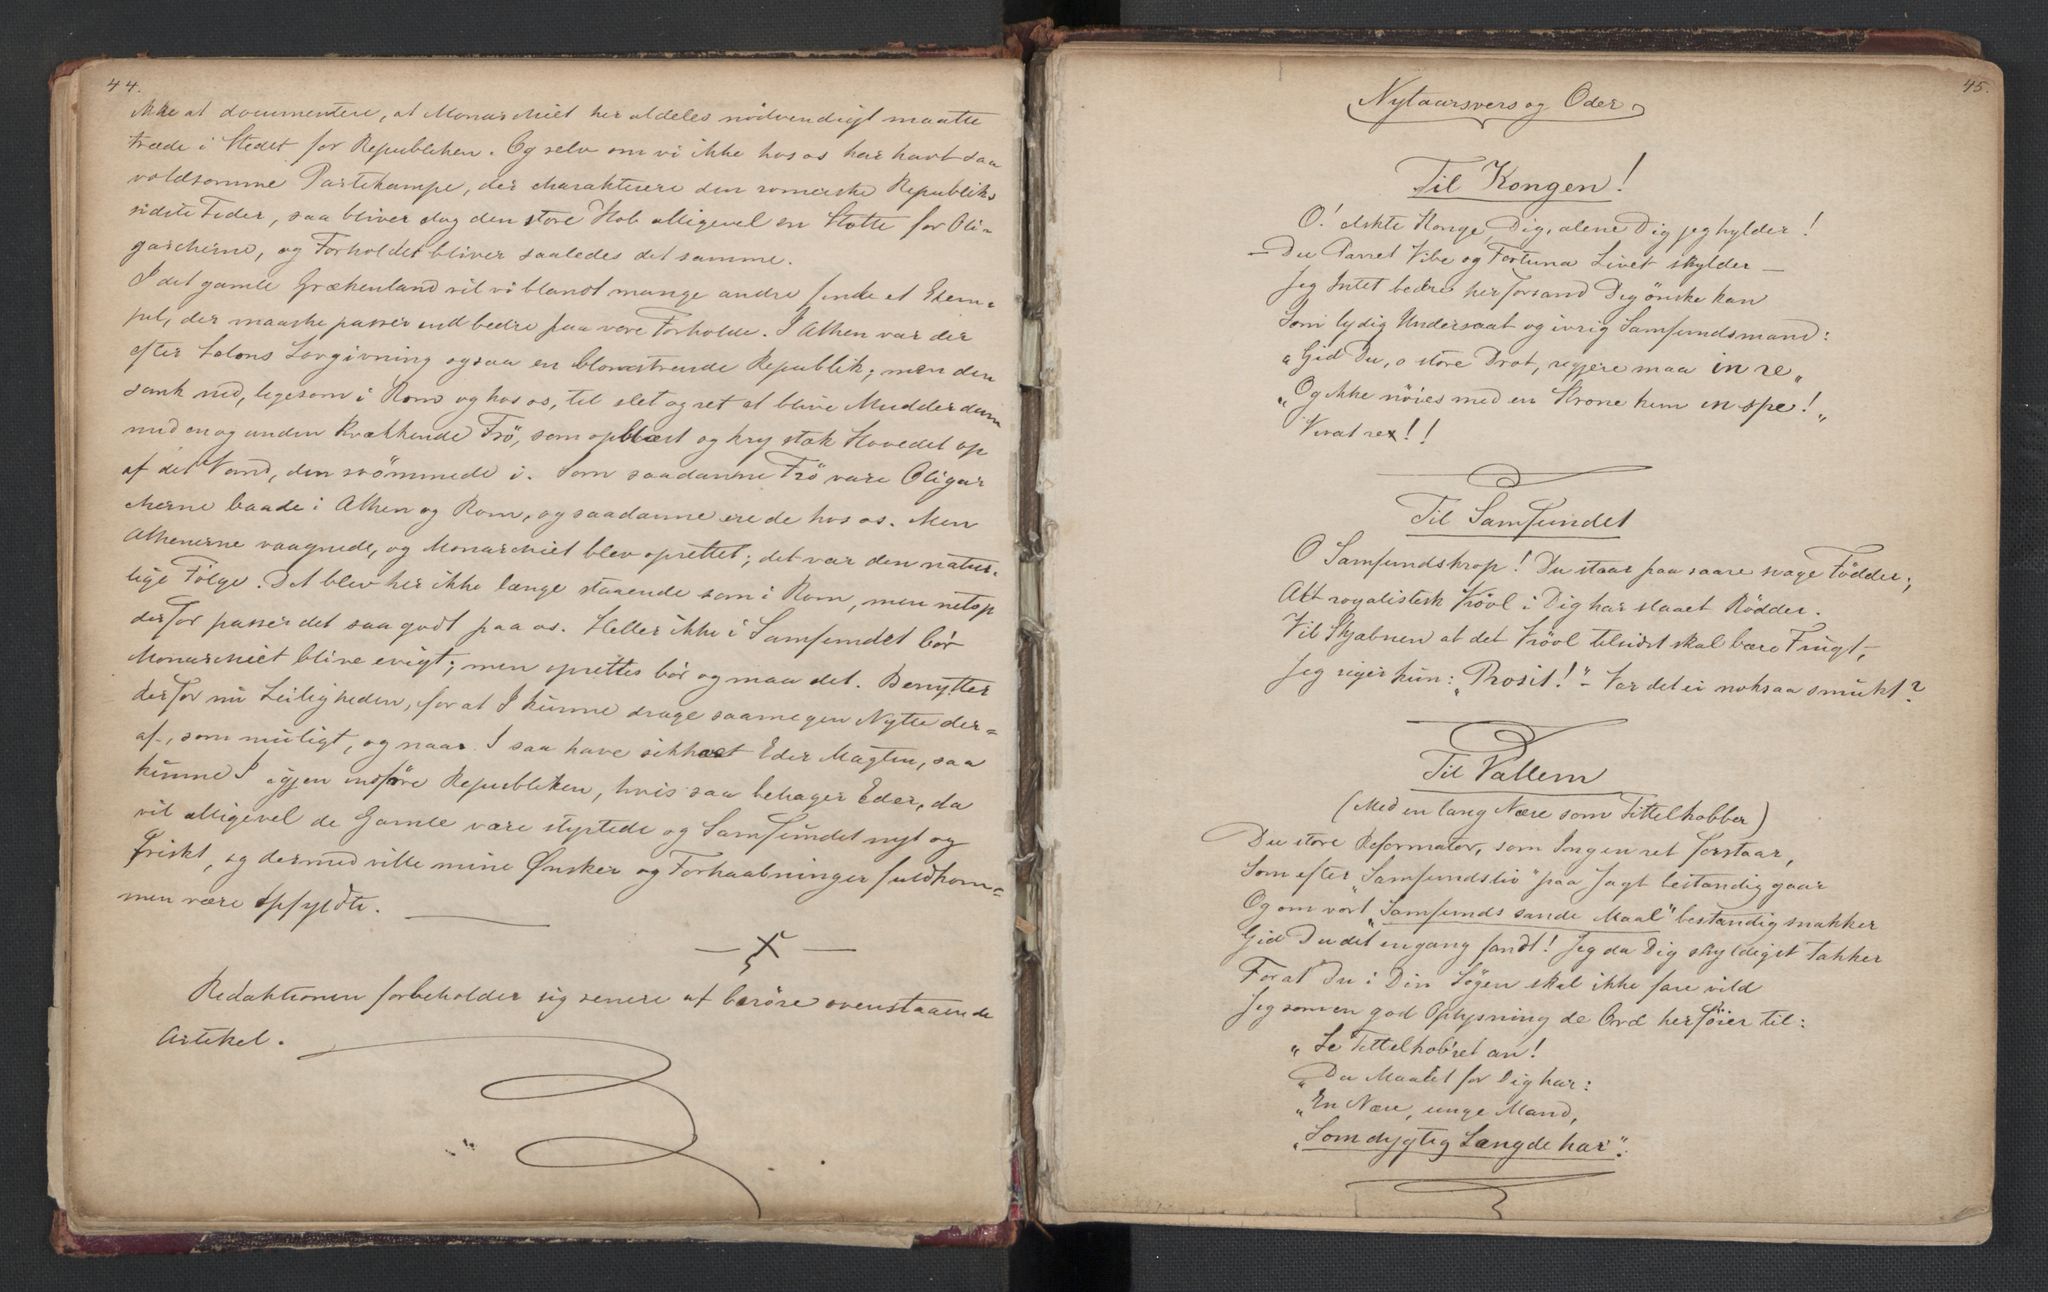 44.
ikke at documentere, at Monarchiet her aldeles nødvendigt maatte
træde i Stedet for Republiken. Og selv om vi ikke hos os har havt saa
voldsomme Partikampe, der charakterisere den romerske Republiks
sidste Tider, saa bliver dog den store Hob alligevel en Støtte for Oli-
garcherne, og Forholdet bliver saaledes det samme.
I det gamle Grækenland vil vi blandt mange andre finde et Exem-
pel, der maaske passer end bedre paa vore Forholde. I Athen var der
efter Solons Lovgivning ogsaa en blomstrende Republik; men den
sank ned, ligesom i Rom og hos os, til slet og ret at blive Mudderdam
med en og anden kvækkende Frö, som opblæst og kry stak Hovedet op
af det Vand, den svömmede i. Som saadanne Frö vare Oligar
cherne baade i Athen og Rom, og saadanne ere de hos os. Men
Athenerne vaagnede, og Monarchiet blev oprettet; det var den natur-
lige Følge. Det blev her ikke længe staaende som i Rom, men netop
derfor passer det saa godt paa os. Heller ikke i Samfundet bør
Monarchiet blive evigt; men oprettes bör og maa det. Benytter
derfor nu Leiligheden, for at I kunne drage saamegen Nytte der-
af, som muligt, og naar I saa have sikkret Eder Magten, saa
kunne I igjen indføre Republiken, hvis saa behager Eder, da
vil alligevel de Gamle være styrtede og Samfundet nyt og
friskt, og dermed ville mine Ønsker og Forhaabninger fuldkom-
men være opfyldte.
Redaktionen forbeholder sig senere at berøre ovenstaaende
Artikel.
45.
Nytaarsvers og Oder
Til Kongen!
O! elskte Konge, Dig, alene Dig jeg hylder!
— Du Parret Vibe og Fortuna Livet skylder —
Jeg Intet bedre her forsand Dig önske kan
Som lydig Undersaat og ivrig Samfundsmand:
"Gid Du, o store Drot, regjere maa in re"
"Og ikke nöies med en Krone kun in spe!"
Vivat rex!!
Til Samfundet
O Samfundskrop! Du staar paa saare svage Födder;
Alt royalistisk Kröol i Dig har slaaet Rödder.
Vil Skjæbnen at det Kröol tilsidst skal bære Frugt,
Jeg siger kun: "Prosit!" - Var det ei noksaa smukt?
Til Pallem
(Med en lang Næse som Tittelkobber)
Du store Reformator, som Ingen ret forstaar,
Som efter "Samfundsliv" paa Jagt bestandig gaar
Og om vort "Samfunds sande Maal" bestandig snakker
Gid Du det engang fandt! Jeg da Dig skyldigst takker
For at Du i Din Sögen skal ikke fare vild
Jeg som en god Oplysning de Ord her föier til:
"Se Tittelkob'ret an!
"Du Maalet for Dig har:
"En Næse, unge Mand,
"Som dygtig Længde har".